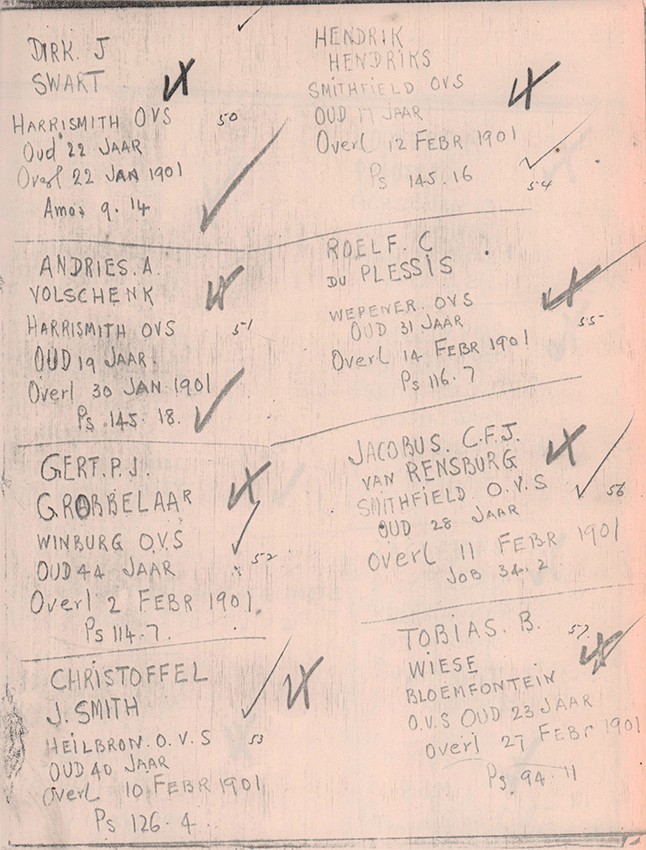 DIRK. J
SWART
HARRISMITH OVS
50
Oud 22 JAAR
Overl 22 JAN 1901
Amos 9. 14
ANDRIES. A.
VOLSCHENK
HARRISMITH OVS
51
OUD 19 JAAR.
Overl 30 JAN 1901
Ps 145. 18.
GERT. P. J.
GROBBELAAR
WINBURG O.V.S
52
OUD 44 JAAR
Overl 2 FEBR 1901.
Ps 114. 7.
CHRISTOFFEL
J. SMITH
HEILBRON. O. V. S
53
OUD 40 JAAR
Overl 10 FEBR 1901
Ps 126. 4.
HENDRIK
HENDRIKS
SMITHFIELD OVS
OUD 17 JAAR
Overl 12 FEBR 1901
Ps 145. 16
54
ROELF. C.
DU PLESSIS
WEPENER. OVS
55
OUD 31 JAAR
Overl 14 FEBR 1901
Ps 116. 7
JACOBUS. C.F.J.
VAN RENSBURG
SMITHFIELD O.V.S
56
OUD 28 JAAR
Overl 11 FEBR 1901
JOB 34. 2
TOBIAS. B.
57
WIESE
BLOEMFONTEIN
O.V.S OUD 23 JAAR
Overl 27 FEBR 1901
Ps. 94. 11